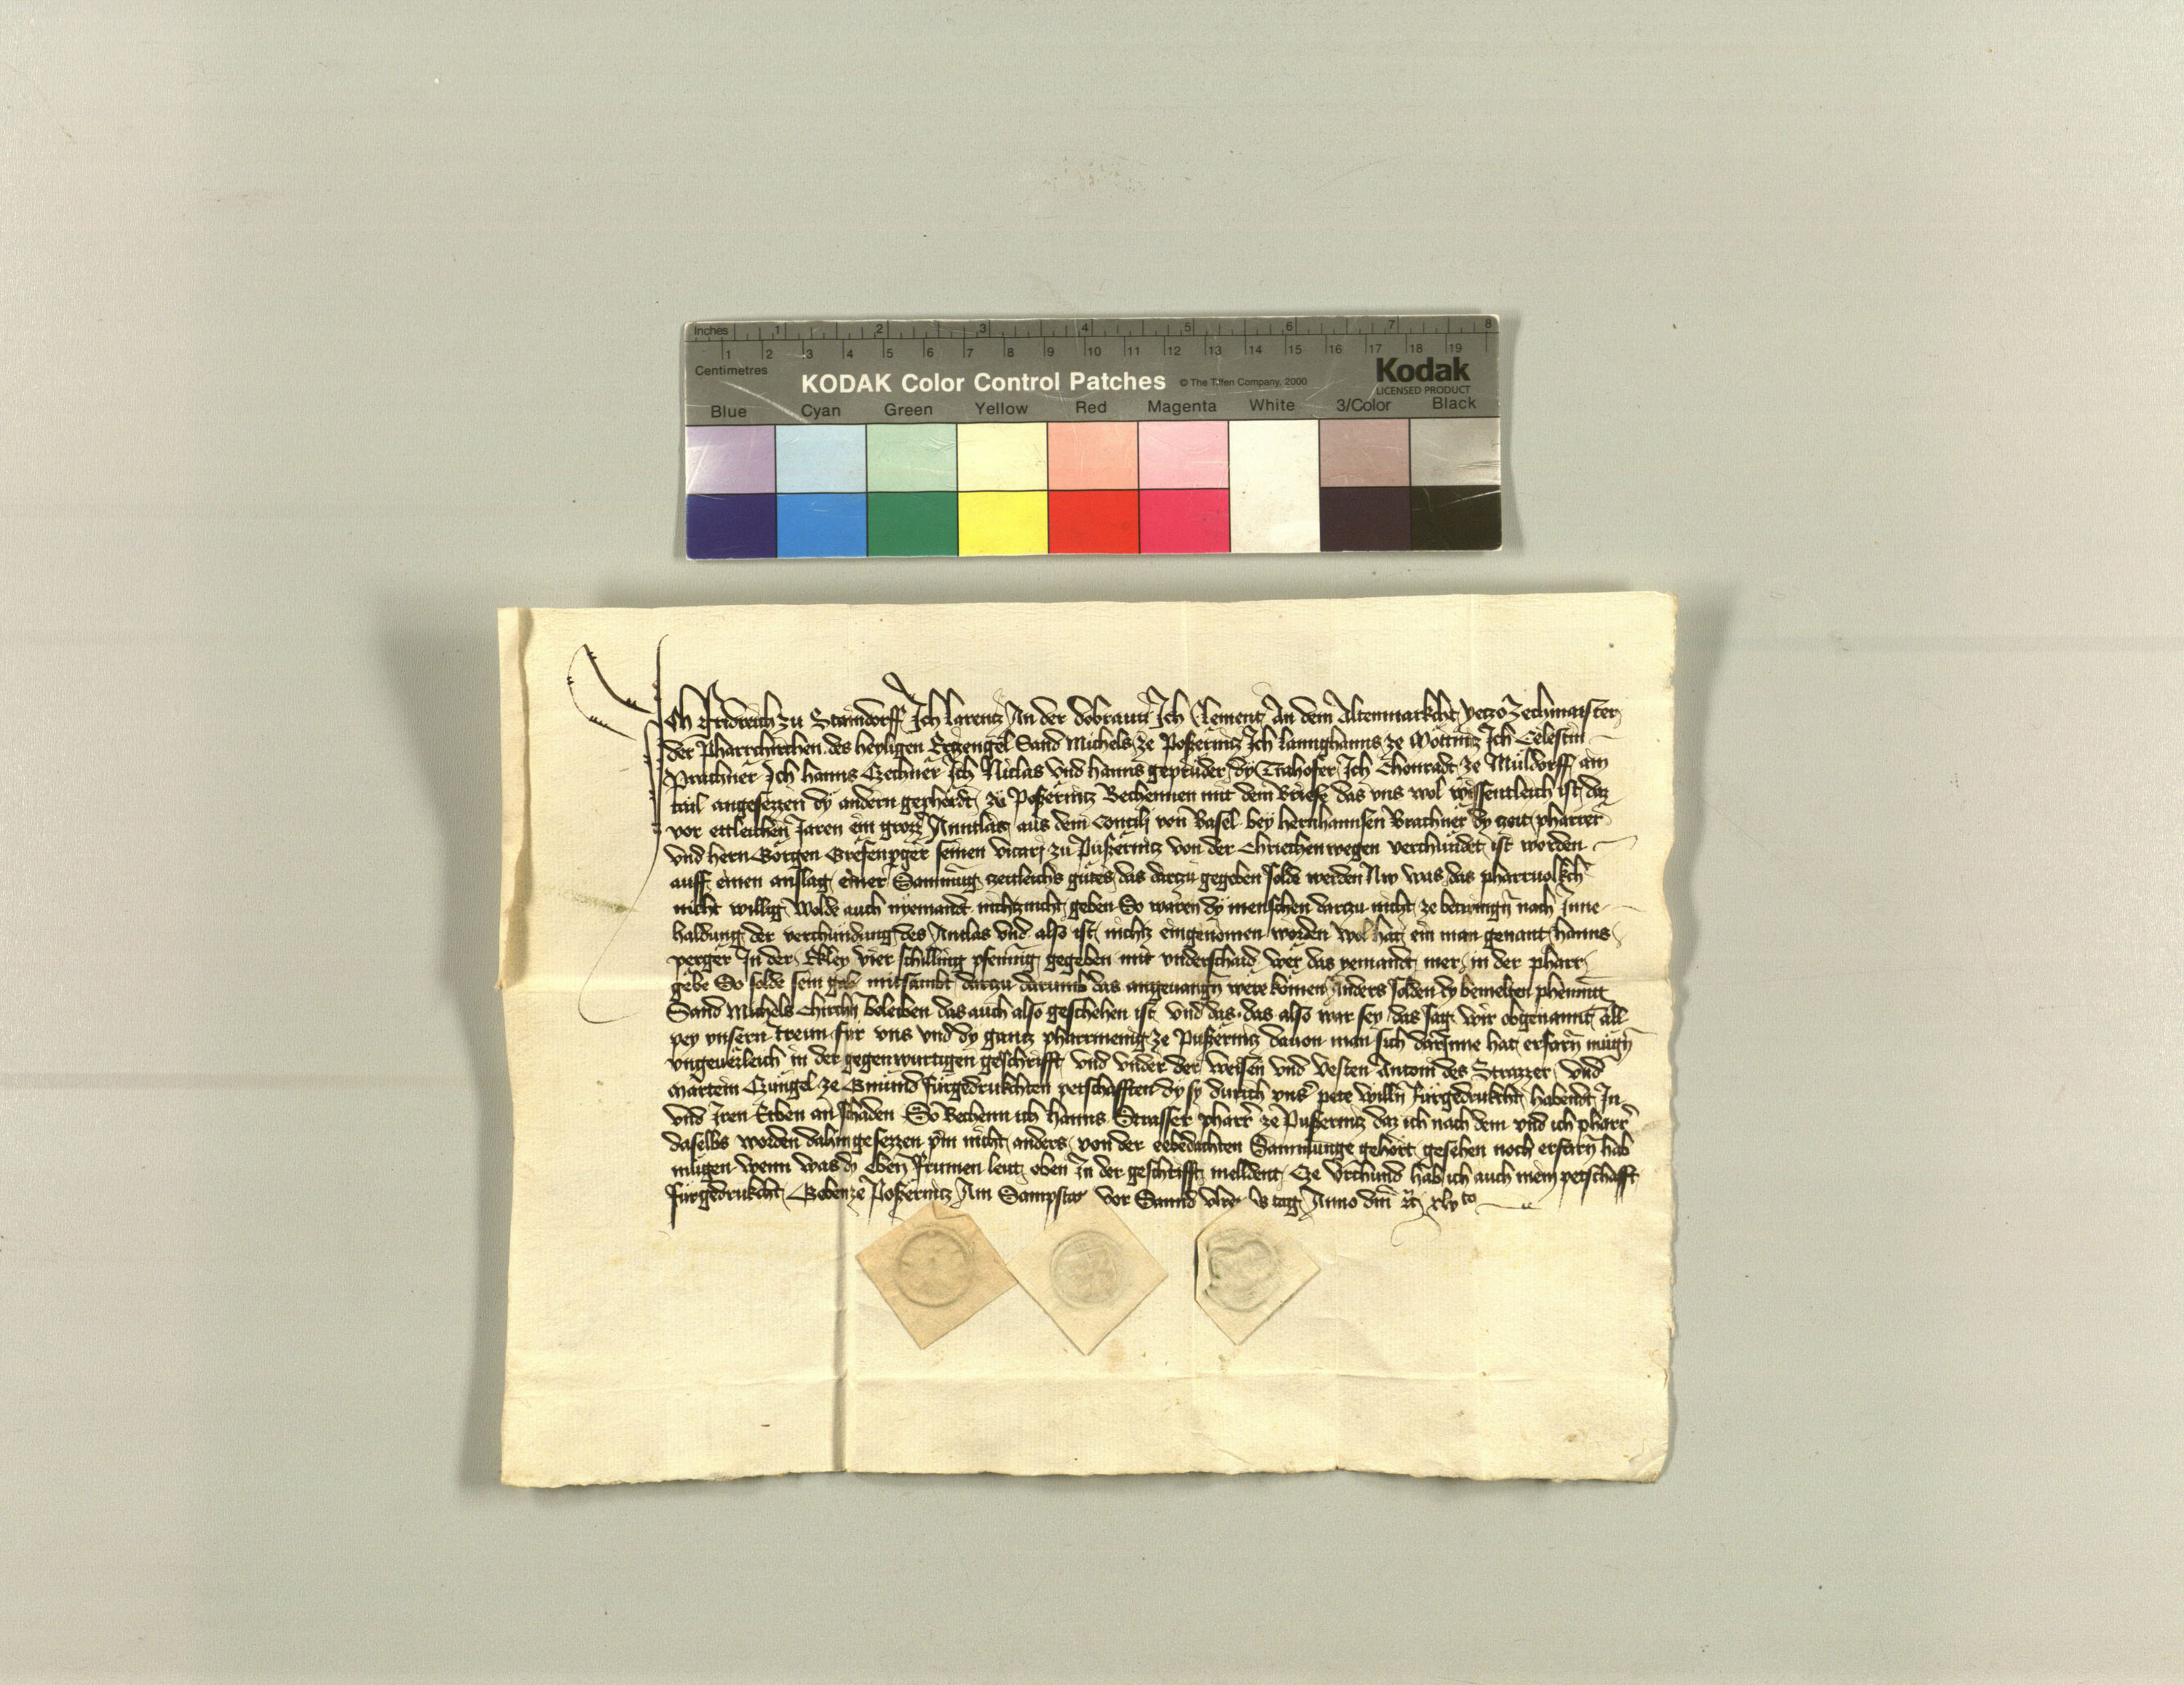 Inches 1 2 3 4 5 6 7 8
1 2 3 4 5 6 7 8 9 10 11 12 13 14 15 16 17 18 19
Centimetres
KODAK Color Control Patches © The Tiffen Company, 2000 Kodak
LICENSED PRODUCT
Blue Cyan Green Yellow Red Magenta White 3/Color Black
Ich Fridreich zu Staindorff Ich Larentz In der dobraw Ich Clement An dem Altenmarkcht yeczo Zechmaister
der Pharrchirchen des heyligen Erczengel Sand Michels ze Poszernitz Ich Lannghanns ze Ich Celestin
Prachner Ich Hanns Czechner Ich Niclas vnd Hanns geprüder dy Ich Chonradt ze Müldorff ain
tail angesezzen dy andern gephördt zu Poszernitz Bechennen mit dem Briefe das vns wol wissentleich ist daz
vor ettleichen Jaren ein grozz Anntlas aus dem Concilj von Basel bey hern hannsen Prachner dy zeit pharrer
vnd hern Görgen seinen vicarj zu Puszernitz von der Chriechen wegen verchündet ist worden
auff einen anslag einer Sammung zeitleichs gütes das darczu gegeben solde werden Nw was das pharruolkch
nicht willig Wolde auch nyemandt nichtznicht geben So waren dy menschen darczu nicht ze betwingen nach Inne
haldung der verchündung des Antlas vnd also ist nichtz eingenomen worden Wol hat ein man genant Hanns
perger In der vier schilling pfenning gegeben mit vnderschaid wer das yemandt mer in der pharr
gebe So solde sein gab mitsambt darczu darumb das angeuangen were komen Anders solden dy bemelten phennig
Sand Michels Chirchen beleiben das auch also geschehen ist vnd das das also war sey das sag wir obgenannt all
pey vnsern trewn für vns vnd dy gantz pharrmenig ze Puszernitz dauon man sich darInne hat erfarn mügen
vngeuerleich in der gegenwurtigen geschrifft vnd vnder der weisen vnd vesten Antoni des Strazzer vnd
Martein Czüngel ze Gmünd fürgedrukchten petschafften dy sy durich vnser pete willen fürgedrukcht habendt In
vnd Iren Erben an schaden So Bechenn ich Hanns Strasser pharrer ze Puszernitz daz ich nach dem vnd ich pharrer
daselbs worden dahin gesezzen pin nicht anders von der eebedachten Sammunge gehört gesehen noch erfarn hab
mügen wenn was dy Eben frumen leut oben in der geschrifft melldent Cze Vrchund hab ich auch mein petschafft
fürgedrukcht Geben ze Poszernitz Am Sampstag vor Sannd tag Anno dm xlvto